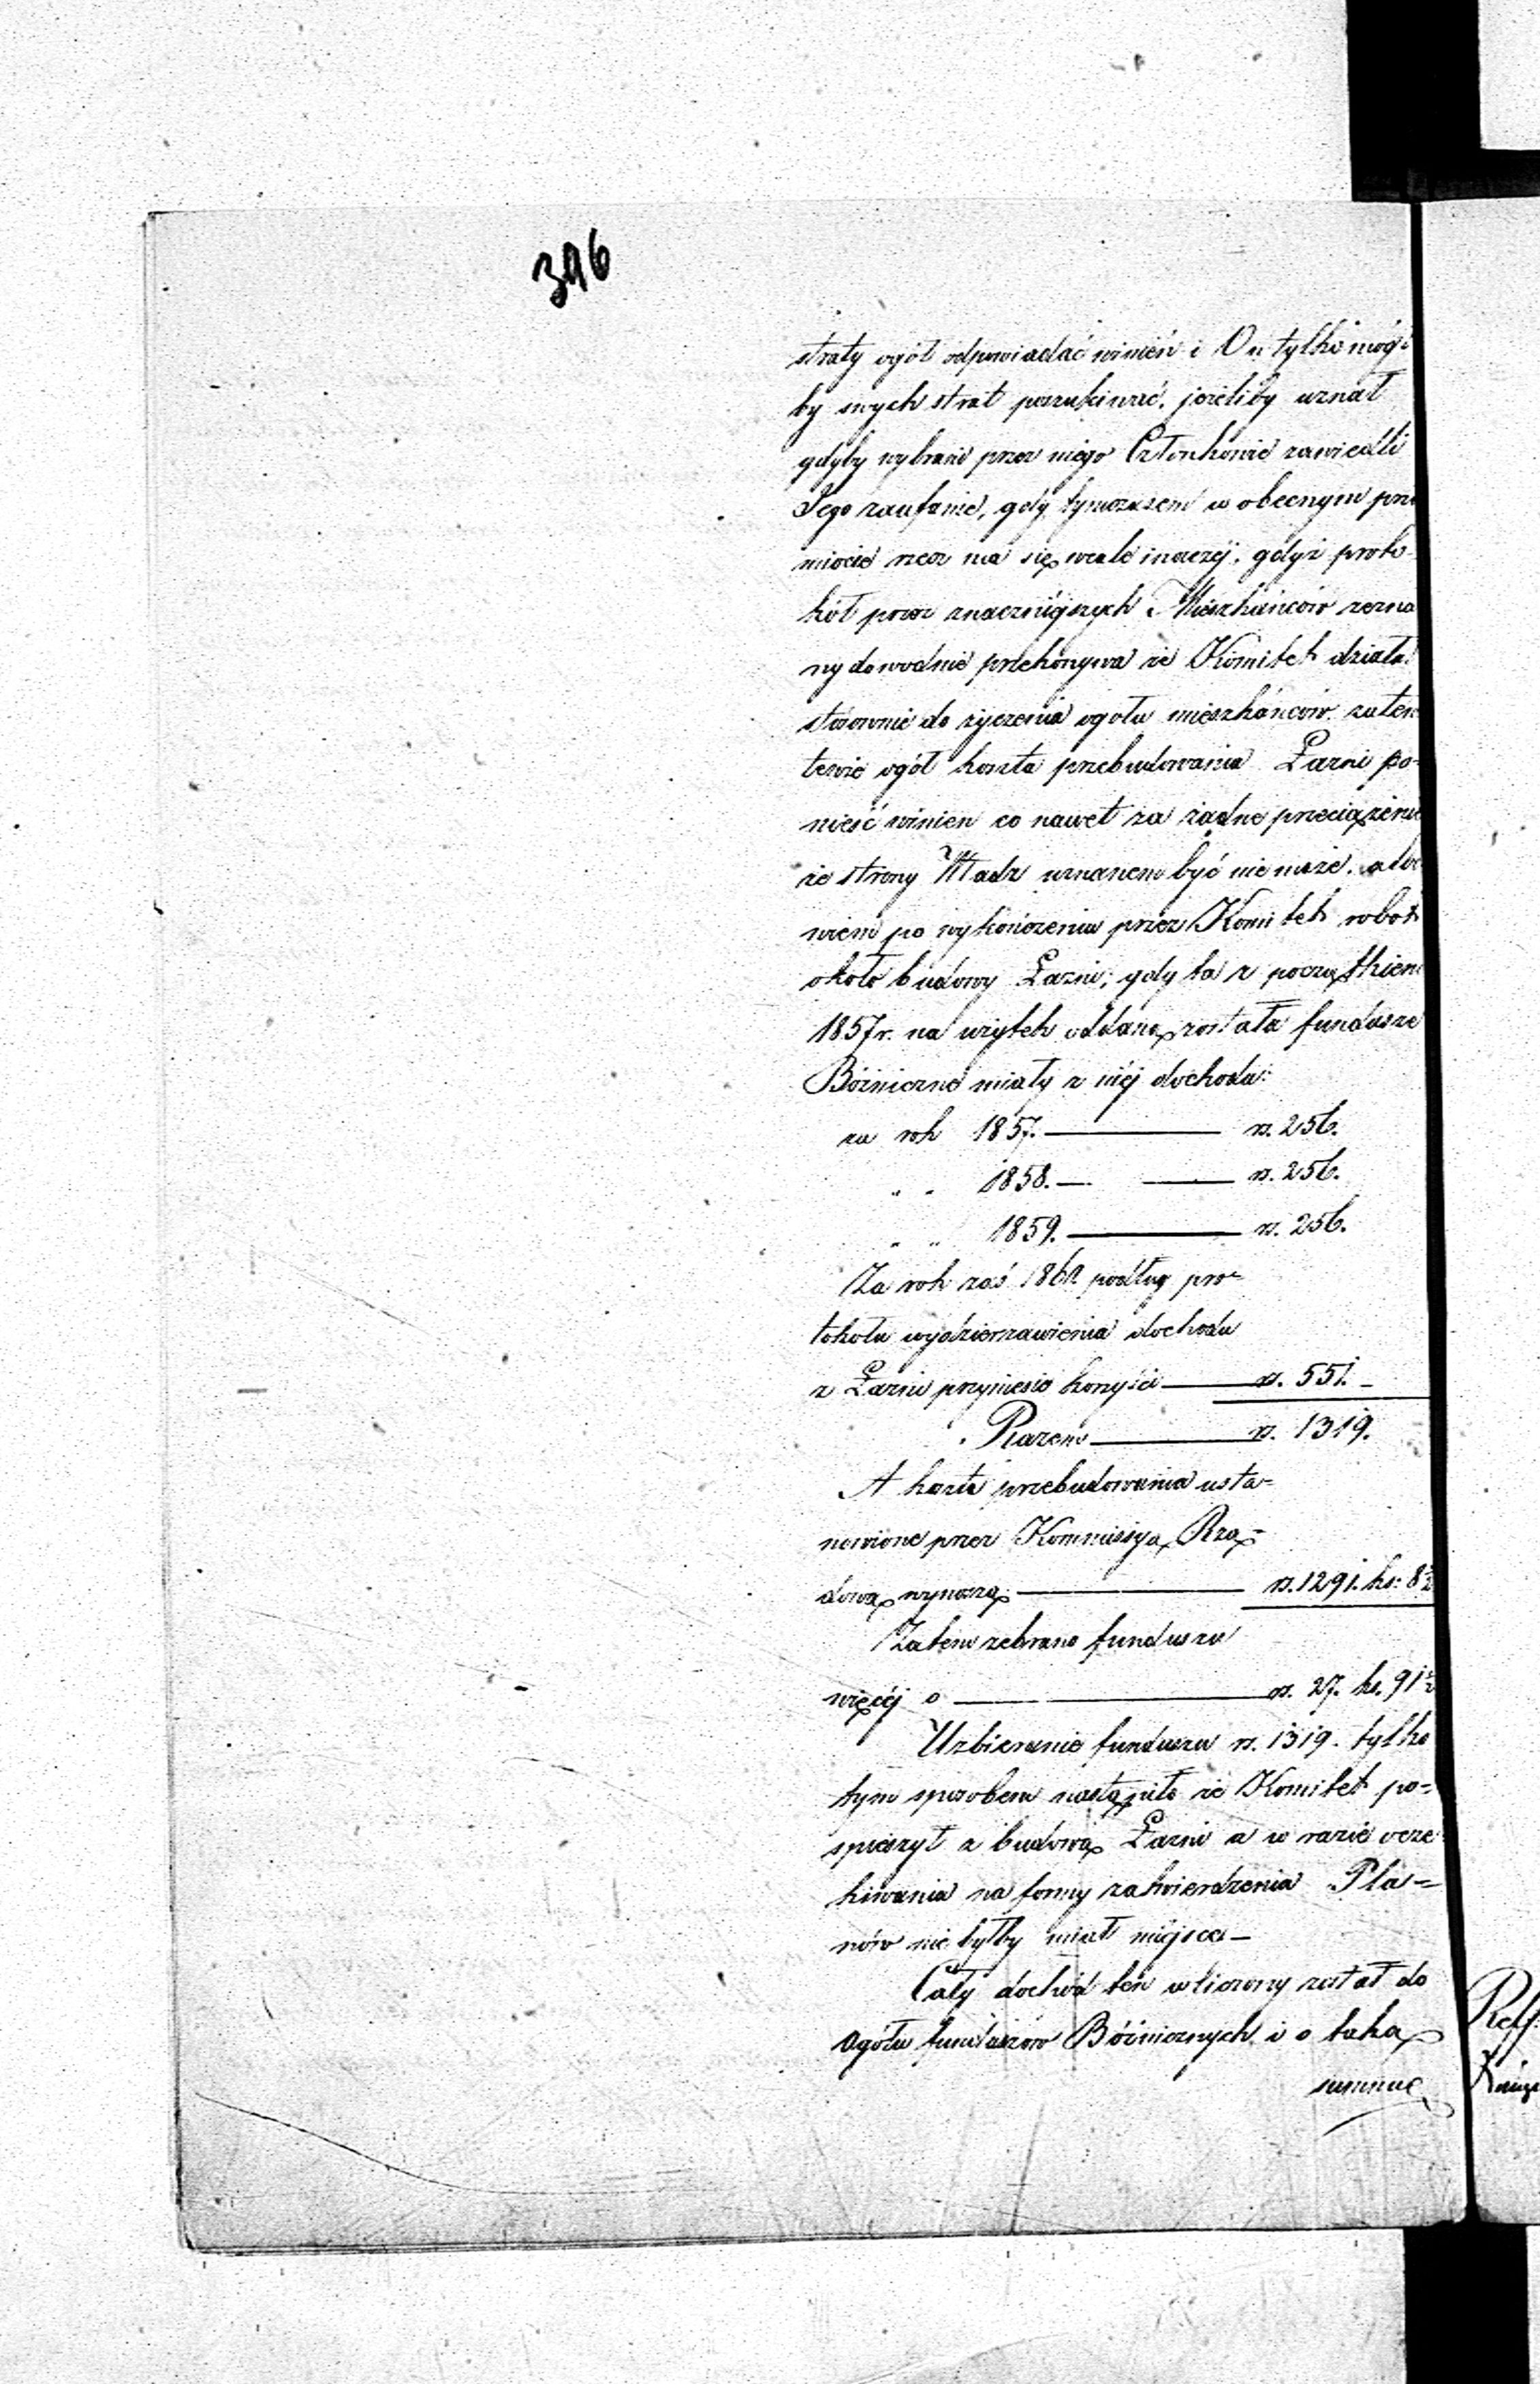 396
straty ogół odpowiadać winien i On tylko mógł
by swych strat poszukiwać, jeżeliby uznał
gdyby wybrani przez niego Członkowie zawiedli
Jego zaufanie, gdy tymczasem w obecnym prze
miocie rzecz ma się wcale inaczéj, gdyż proto
kół przez znaczniéjszych Mieszkańców zezna
ny dowodnie przekonywa że Komitet działał
stósownie do życzenia ogółu mieszkańców zatem
tenże ogół koszta przebudowania Łazni po-
nieść winien co nawet za żadne przeciążenie
ze strony Władz uznanem być nie może, albo
wiem po wykończeniu przez Komitet robot
około budowy Łazni, gdy ta z początkiem
1857 r. na użytek oddaną została fundusze
Bóżniczne miały z niéj dochodu:
za rok 1857. — rs. 256.
" " 1858. — — rs. 256.
" " 1859. — rs. 256.
Za rok zaś 1860 podług pro-
tokółu wydzierzawienia dochodu
z Łazni przyniesie korzyści — rs. 551. –
Razem — rs. 1319.
A koszta przebudowania usta=
nowione przez Kommissyą Rzą=
dową wynoszą — rs. 1291. ko: 8½
Zatem zebrano funduszu
więcéj o — rs. 27. ko. 91½
Uzbieranie funduszu rs. 1319. tylko
tym sposobem nastąpiło że Komitet po=
spieszył z budową Łazni a w razie ocze
kiwania na formy zatwierdzenia Pla=
nów nie byłby miał miejsca –
Cały dochód ten wliczony został do
Ogółu funduszów Bóżnicznych i o taką
summę